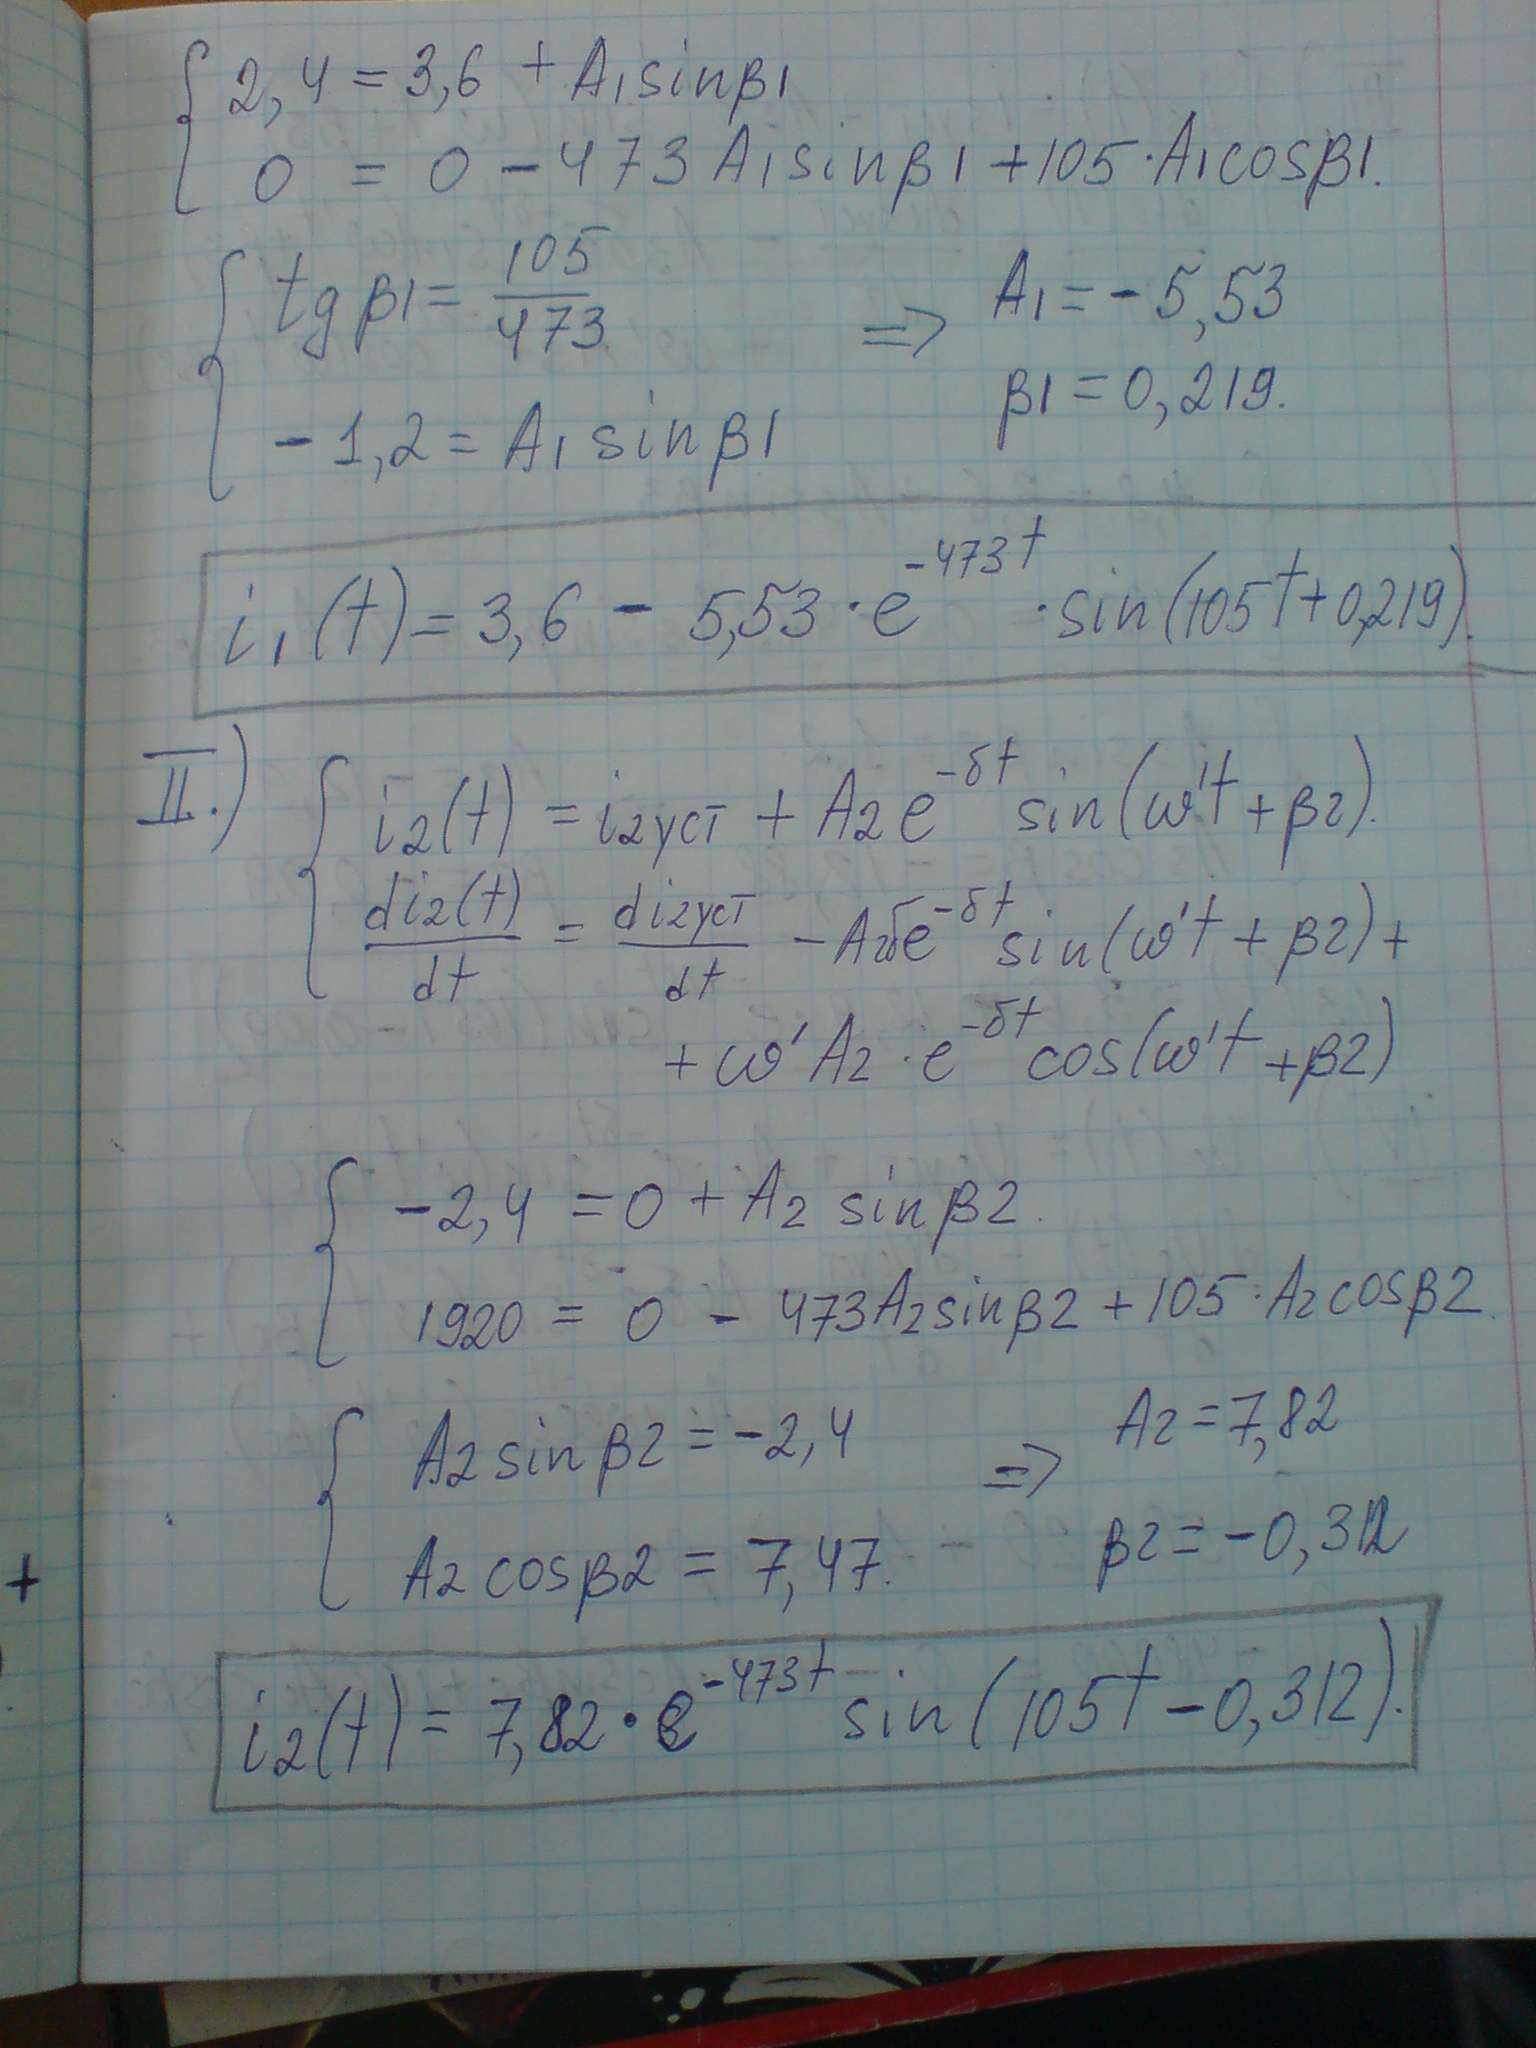 2,4 = 3,6 + A1 sinβ1
0 = 0 - 473 A1 sinβ1 + 105·A1cosβ1.
tgβ1 = 105/473 => A1 = -5,53
-1,2 = A1 sinβ1 β1 = 0,219.
i1(t) = 3,6 - 5,53·e^-473t · sin(105t + 0,219).
II.) i2(t) = i2уст + A2 e^-δt sin(ω't + β2).
di2(t)/dt = di2уст/dt - A2δe^-δt sin(ω't + β2) +
+ ω'A2·e^-δt cos(ω't + β2)
-2,4 = 0 + A2 sinβ2.
1920 = 0 - 473A2sinβ2 + 105·A2cosβ2.
A2 sinβ2 = -2,4 => A2 = 7,82
A2 cosβ2 = 7,47. β2 = -0,312
i2(t) = 7,82·e^-473t sin(105t - 0,312).
+